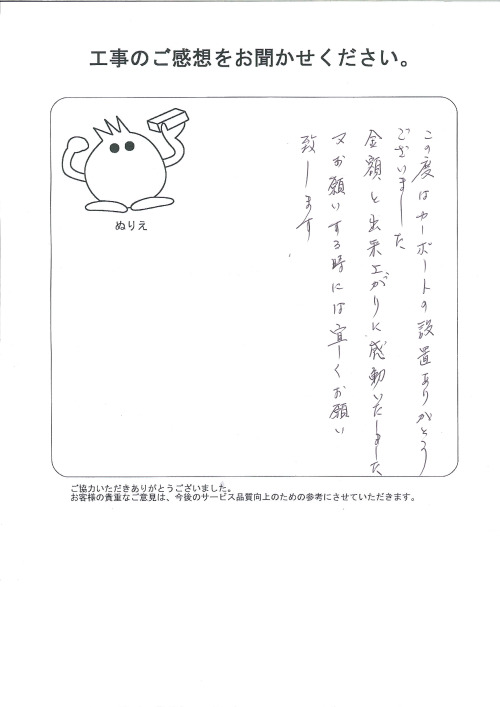 工事のご感想をお聞かせください。
ぬりえ
この度はカーポートの設置ありがとう
ございました
金額と出来上がりに感動いたしました
又お願いする時には宜しくお願い
致します
ご協力いただきありがとうございました。
お客様の貴重なご意見は、今後のサービス品質向上のための参考にさせていただきます。